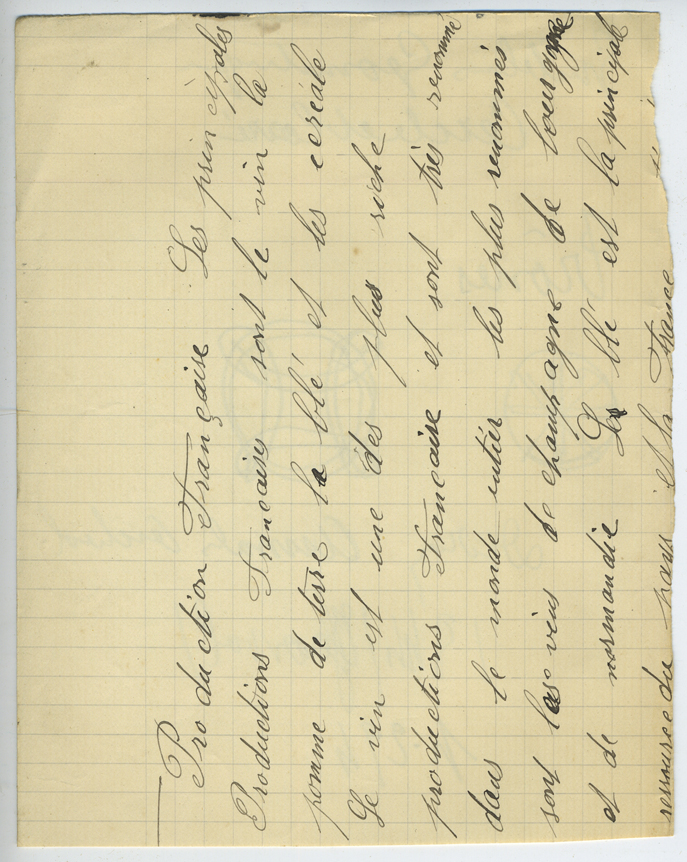 Production Française Les principales
Productions Françaises sont le vin la
pomme de terre le blé et les céréale
Le vin est une des plus riche
productions Française et sont très renommé
dans le monde entier les plus renommés
sont les vins de champagne de bourgogne
et de normandie Le blé est la principal
ressource du pays et la France